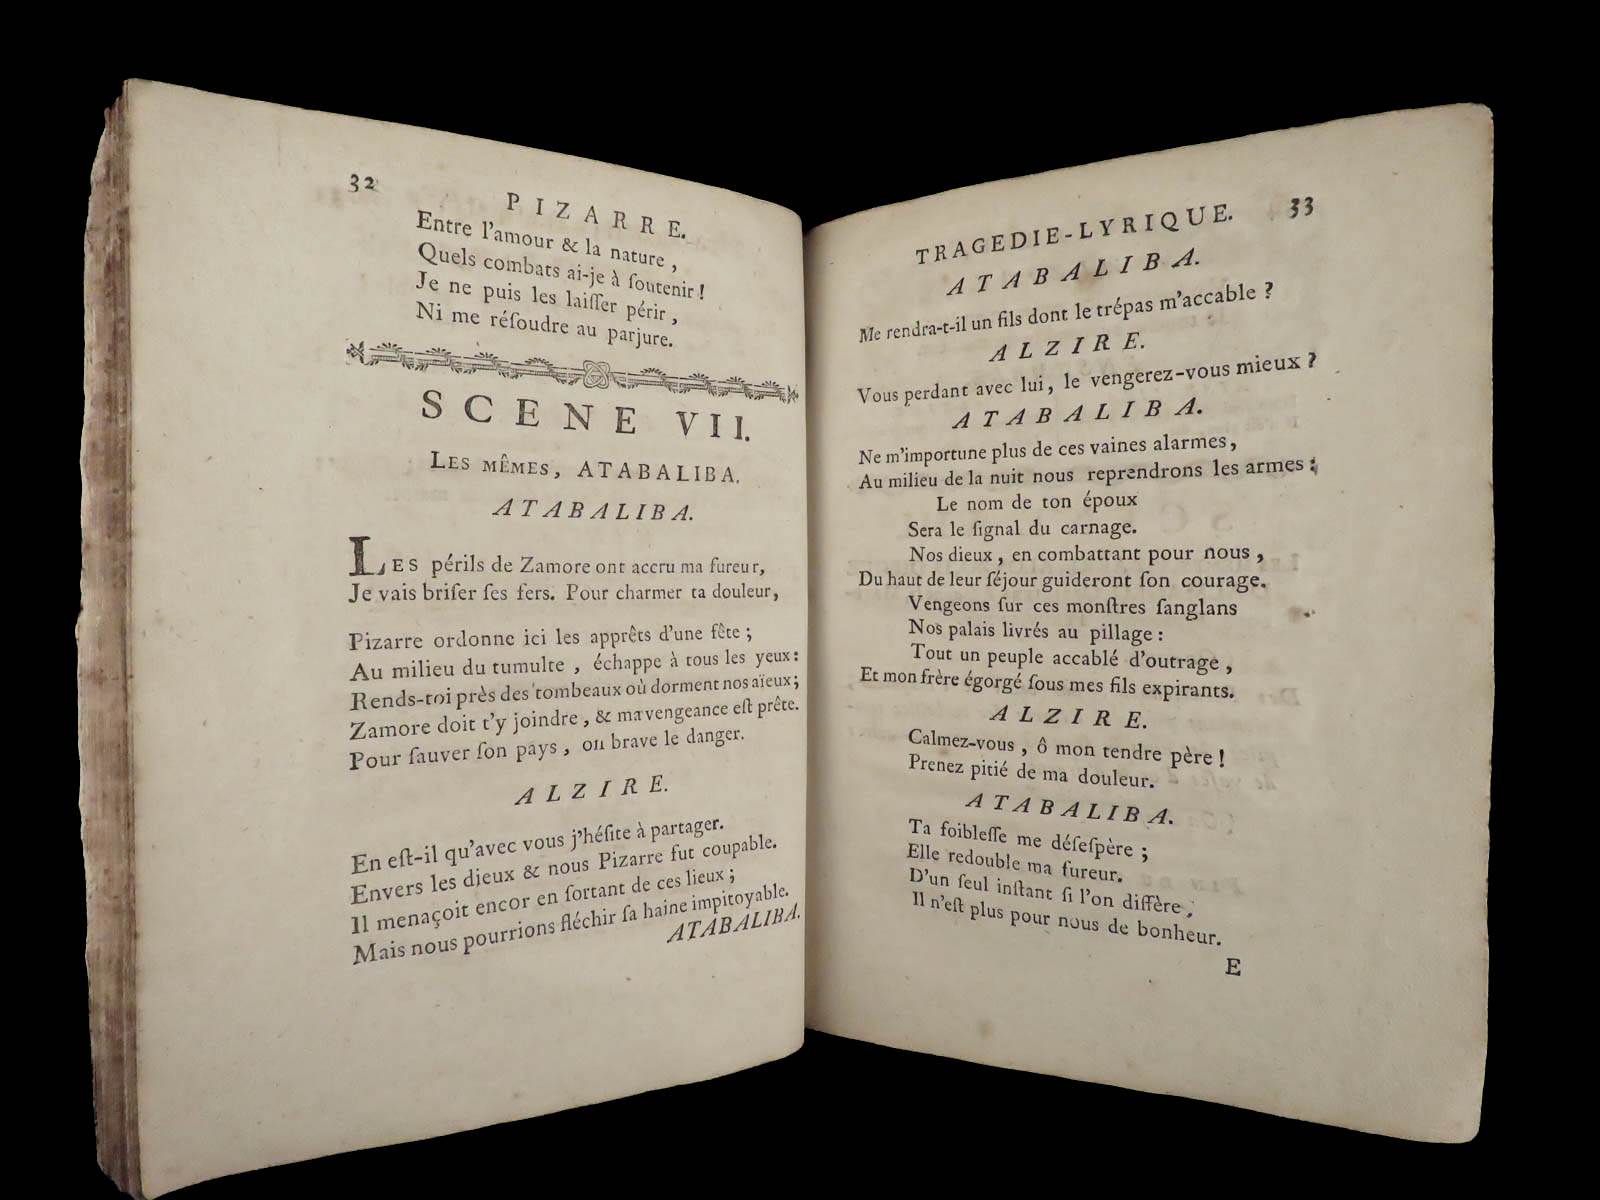 32
PIZARRE.
Entre l'amour & la nature,
Quels combats ai-je à ſoutenir!
Je ne puis les laiſſer périr,
Ni me réſoudre au parjure.
SCENE VII.
LES MÊMES, ATABALIBA.
ATABALIBA.
LES périls de Zamore ont accru ma fureur,
Je vais briſer ſes fers. Pour charmer ta douleur,
Pizarre ordonne ici les apprêts d'une fête;
Au milieu du tumulte, échappe à tous les yeux:
Rends-toi près des tombeaux où dorment nos aïeux;
Zamore doit t'y joindre, & ma vengeance eſt prête.
Pour ſauver ſon pays, on brave le danger.
ALZIRE.
En eſt-il qu'avec vous j'héſite à partager.
Envers les dieux & nous Pizarre fut coupable.
Il menaçoit encor en ſortant de ces lieux;
Mais nous pourrions fléchir ſa haine impitoyable.
ATABALIBA.
TRAGEDIE-LYRIQUE. 33
ATABALIBA.
Me rendra-t-il un fils dont le trépas m'accable?
ALZIRE.
Vous perdant avec lui, le vengerez-vous mieux?
ATABALIBA.
Ne m'importune plus de ces vaines alarmes,
Au milieu de la nuit nous reprendrons les armes:
Le nom de ton époux
Sera le ſignal du carnage.
Nos dieux, en combattant pour nous,
Du haut de leur ſéjour guideront ſon courage.
Vengeons ſur ces monſtres ſanglans
Nos palais livrés au pillage:
Tout un peuple accablé d'outrage,
Et mon frère égorgé ſous mes fils expirants.
ALZIRE.
Calmez-vous, ô mon tendre père!
Prenez pitié de ma douleur.
ATABALIBA.
Ta foibleſſe me déſeſpère;
Elle redouble ma fureur.
D'un ſeul inſtant ſi l'on diffère,
Il n'eſt plus pour nous de bonheur.
E